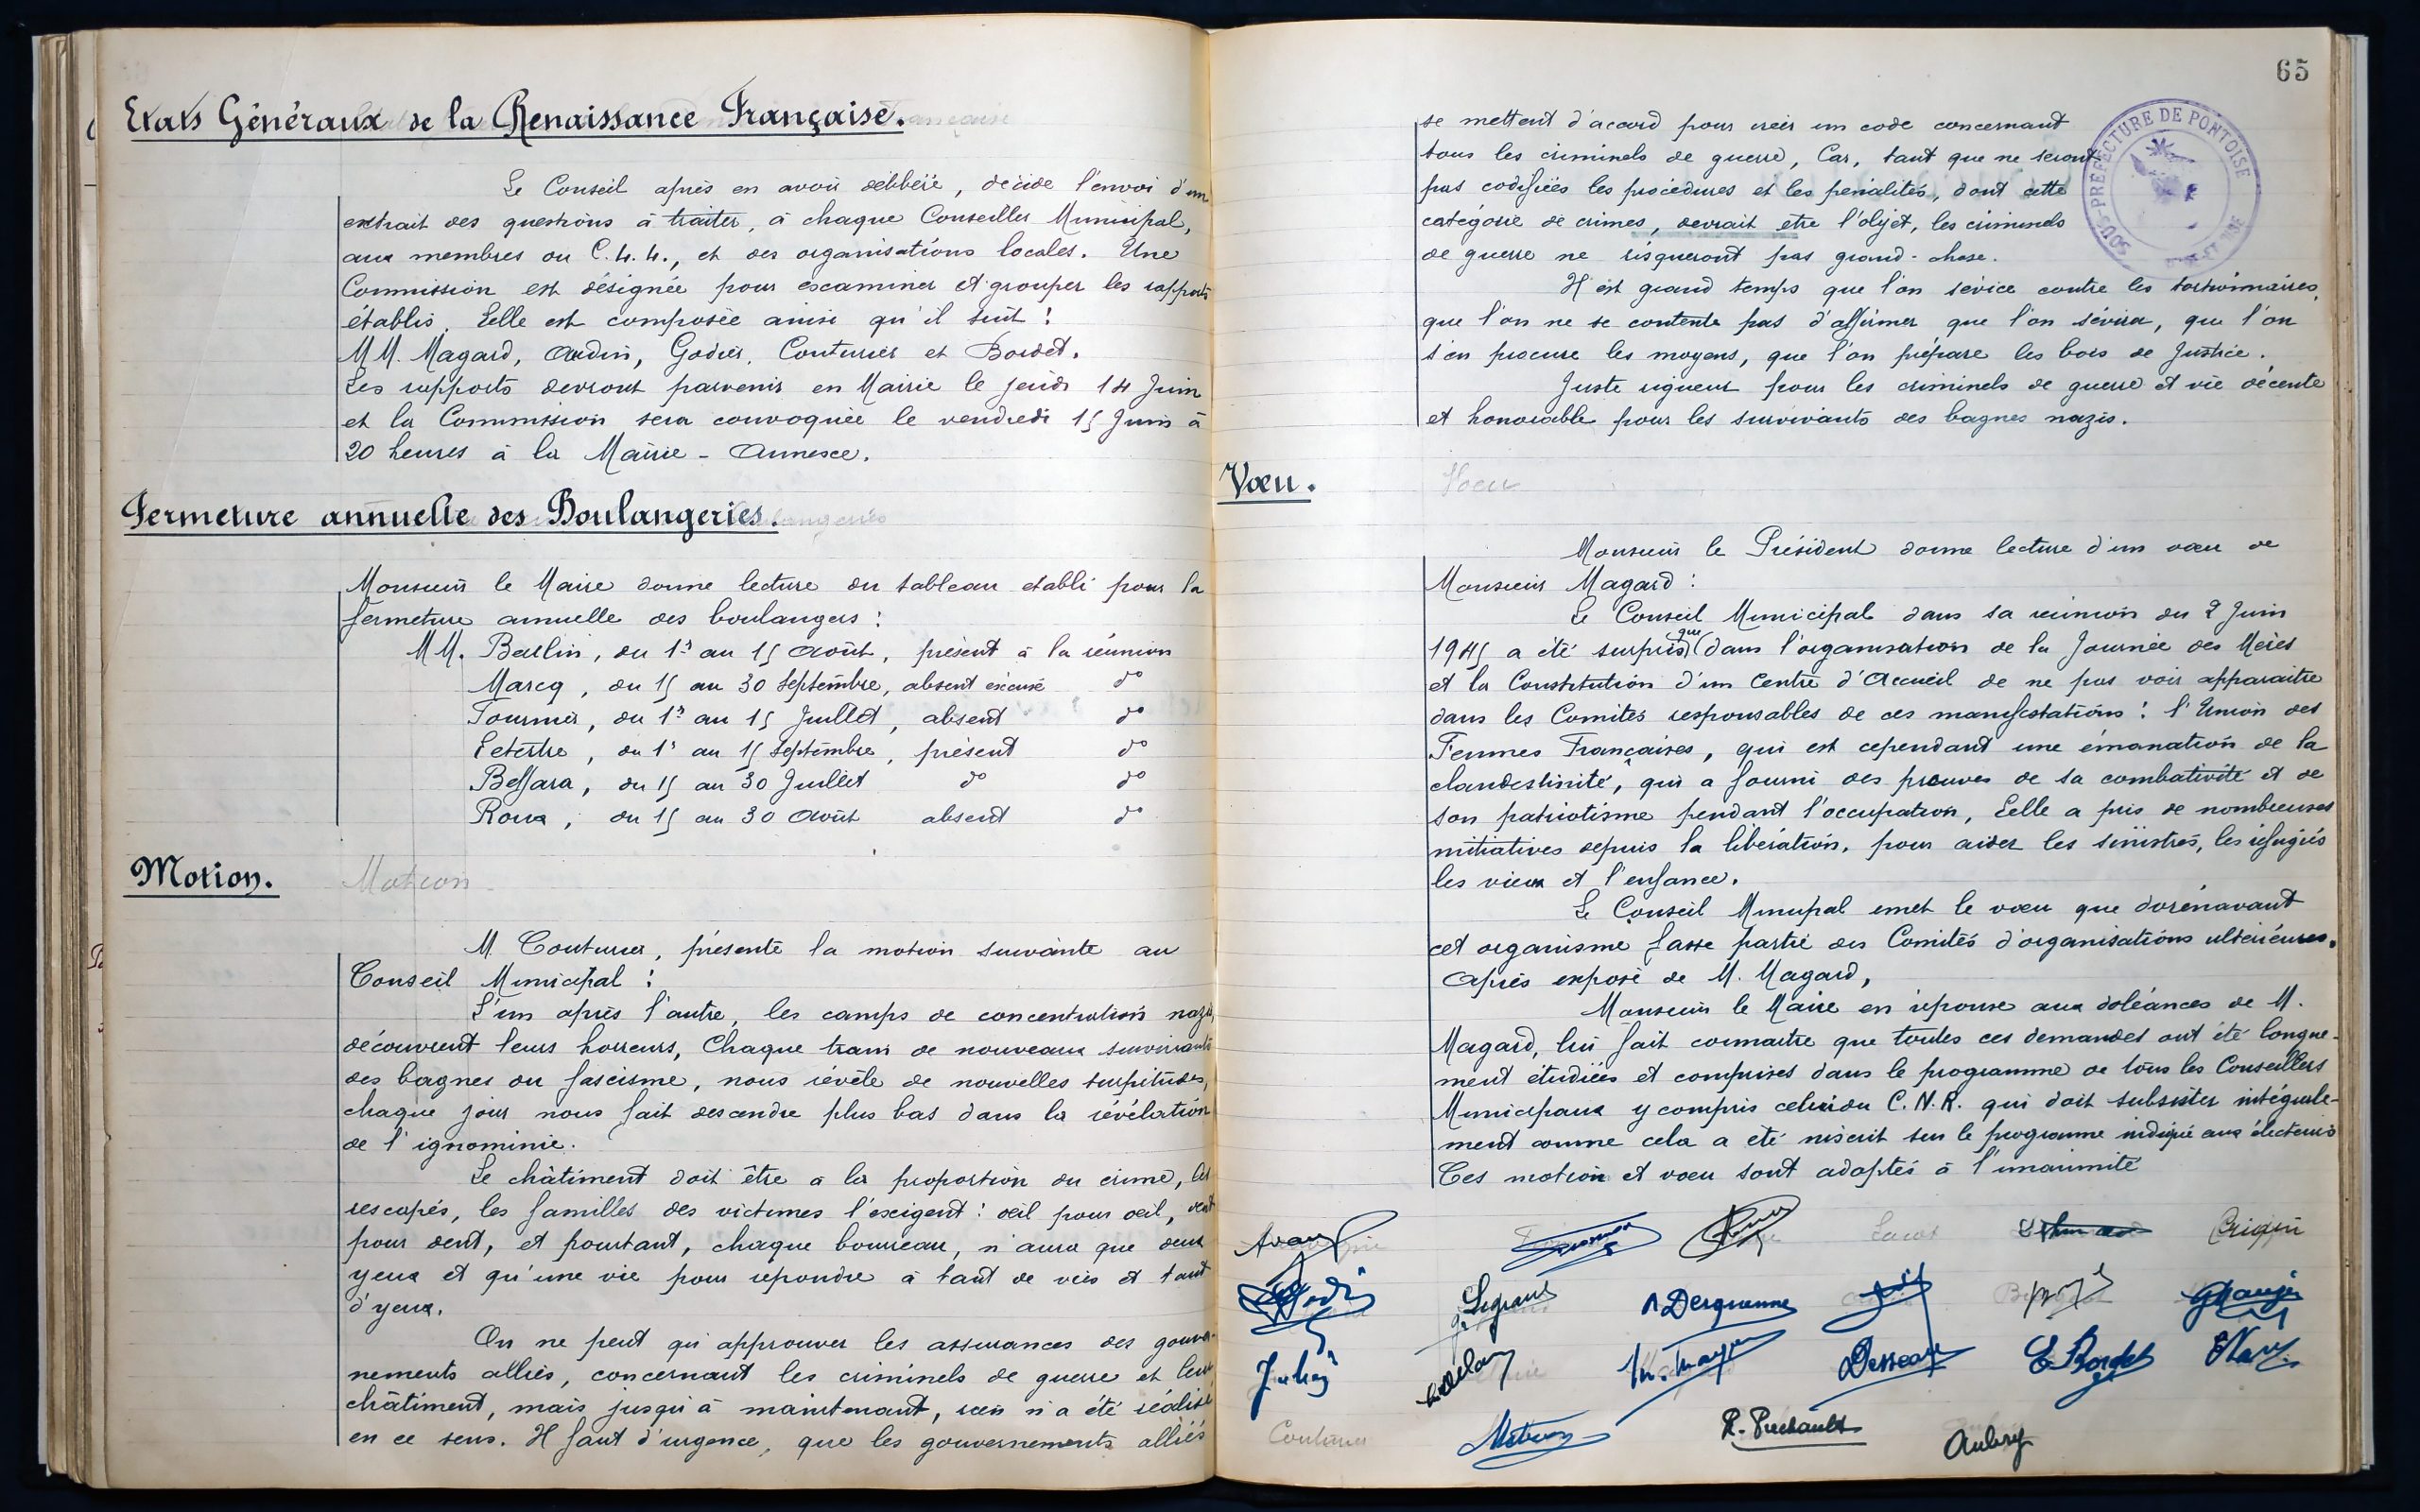 Etats Généraux de la Renaissance Française.
Le Conseil après en avoir délibéré, décide l'envoi d'un
extrait des questions à traiter, à chaque Conseiller Municipal,
aux membres du C.L.L., et des organisations locales. Une
Commission est désignée pour examiner et grouper les rapports
établis. Celle est composée ainsi qu'il suit :
MM. Magard, Godier, Couturier et Bordet.
Les rapports devront parvenir en Mairie le jeudi 14 Juin
et la Commission sera convoquée le vendredi 15 Juin à
20 heures à la Mairie - Annexe.
Fermeture annuelle des Boulangeries.
Monsieur le Maire donne lecture du tableau etabli pour la
fermeture annuelle des boulangers :
MM. Baulin, du 1er au 15 Août, présent à la réunion
Marcq, du 15 au 30 Septembre, absent excusé do
Tournier, du 1er au 15 Juillet, absent do
Letertre, du 1er au 15 Septembre, présent do
Bessara, du 15 au 30 Juillet do do
Roux, du 15 au 30 Août absent do
Motion.
Motion
M. Couturier, présente la motion suivante au
Conseil Municipal :
L'un après l'autre, les camps de concentration nazis,
découvrent leurs horreurs, Chaque train de nouveaux survivants
des bagnes du fascisme, nous révèle de nouvelles turpitudes,
chaque jour nous fait descendre plus bas dans la révélation
de l'ignominie.
Le châtiment doit être à la proportion du crime, les
rescapés, les familles des victimes l'exigent : œil pour œil, dent
pour dent, et pourtant, chaque bourreau, n'aura que deux
yeux et qu'une vie pour répondre à tant de vies et tant
d'yeux.
On ne peut qu'approuver les assurances des gouver-
nements alliés, concernant les criminels de guerre et leur
châtiment, mais jusqu'à maintenant, rien n'a été réalisé
en ce sens. Il faut d'urgence, que les gouvernements alliés
65
SOUS-PRÉFECTURE DE PONTOISE
se mettent d'accord pour créer un code concernant
tous les criminels de guerre, Car, tant que ne seront
pas codifiées les procédures et les pénalités, dont cette
catégorie de crimes, devrait etre l'objet, les criminels
de guerre ne risqueront pas grand-chose.
Il est grand temps que l'on sévice contre les tortionnaires,
que l'on ne se contente pas d'affirmer que l'on sévira, que l'on
s'en procure les moyens, que l'on prépare les bois de Justice.
Juste rigueur pour les criminels de guerre et vie décente
et honorable pour les survivants des bagnes nazis.
Vœu.
Voeu
Monsieur le Président donne lecture d'un vœu de
Monsieur Magard :
Le Conseil Municipal dans sa réunion du 2 Juin
1945 a été surpris que dans l'organisation de la Journée des Mères
et la Constitution d'un Centre d'Accueil de ne pas voir apparaitre
dans les Comités responsables de ces manifestations : l'Union des
Femmes Françaises, qui est cependant une émanation de la
clandestinité, qui a fourni des preuves de sa combativité et de
son patriotisme pendant l'occupation, Celle a pris de nombreuses
initiatives depuis la libération, pour aider les sinistrés, les réfugiés
les vieux et l'enfance.
Le Conseil Municipal emet le vœu que dorénavant
cet organisme fasse partie des Comités d'organisations ultérieures.
Après exposé de M. Magard,
Monsieur le Maire en réponse aux doléances de M.
Magard, lui fait connaitre que toutes ces demandes ont été longue-
ment étudiées et comprises dans le programme de tous les Conseillers
Municipaux y compris celui du C.N.R. qui doit subsister intégrale-
ment comme cela a été inscrit sur le programme indiqué aux électeurs
Ces motion et vœu sont adoptés à l'unanimité
Crispin
Legrand Derquenne
Desseaux E. Bordet
Couturier Aubry